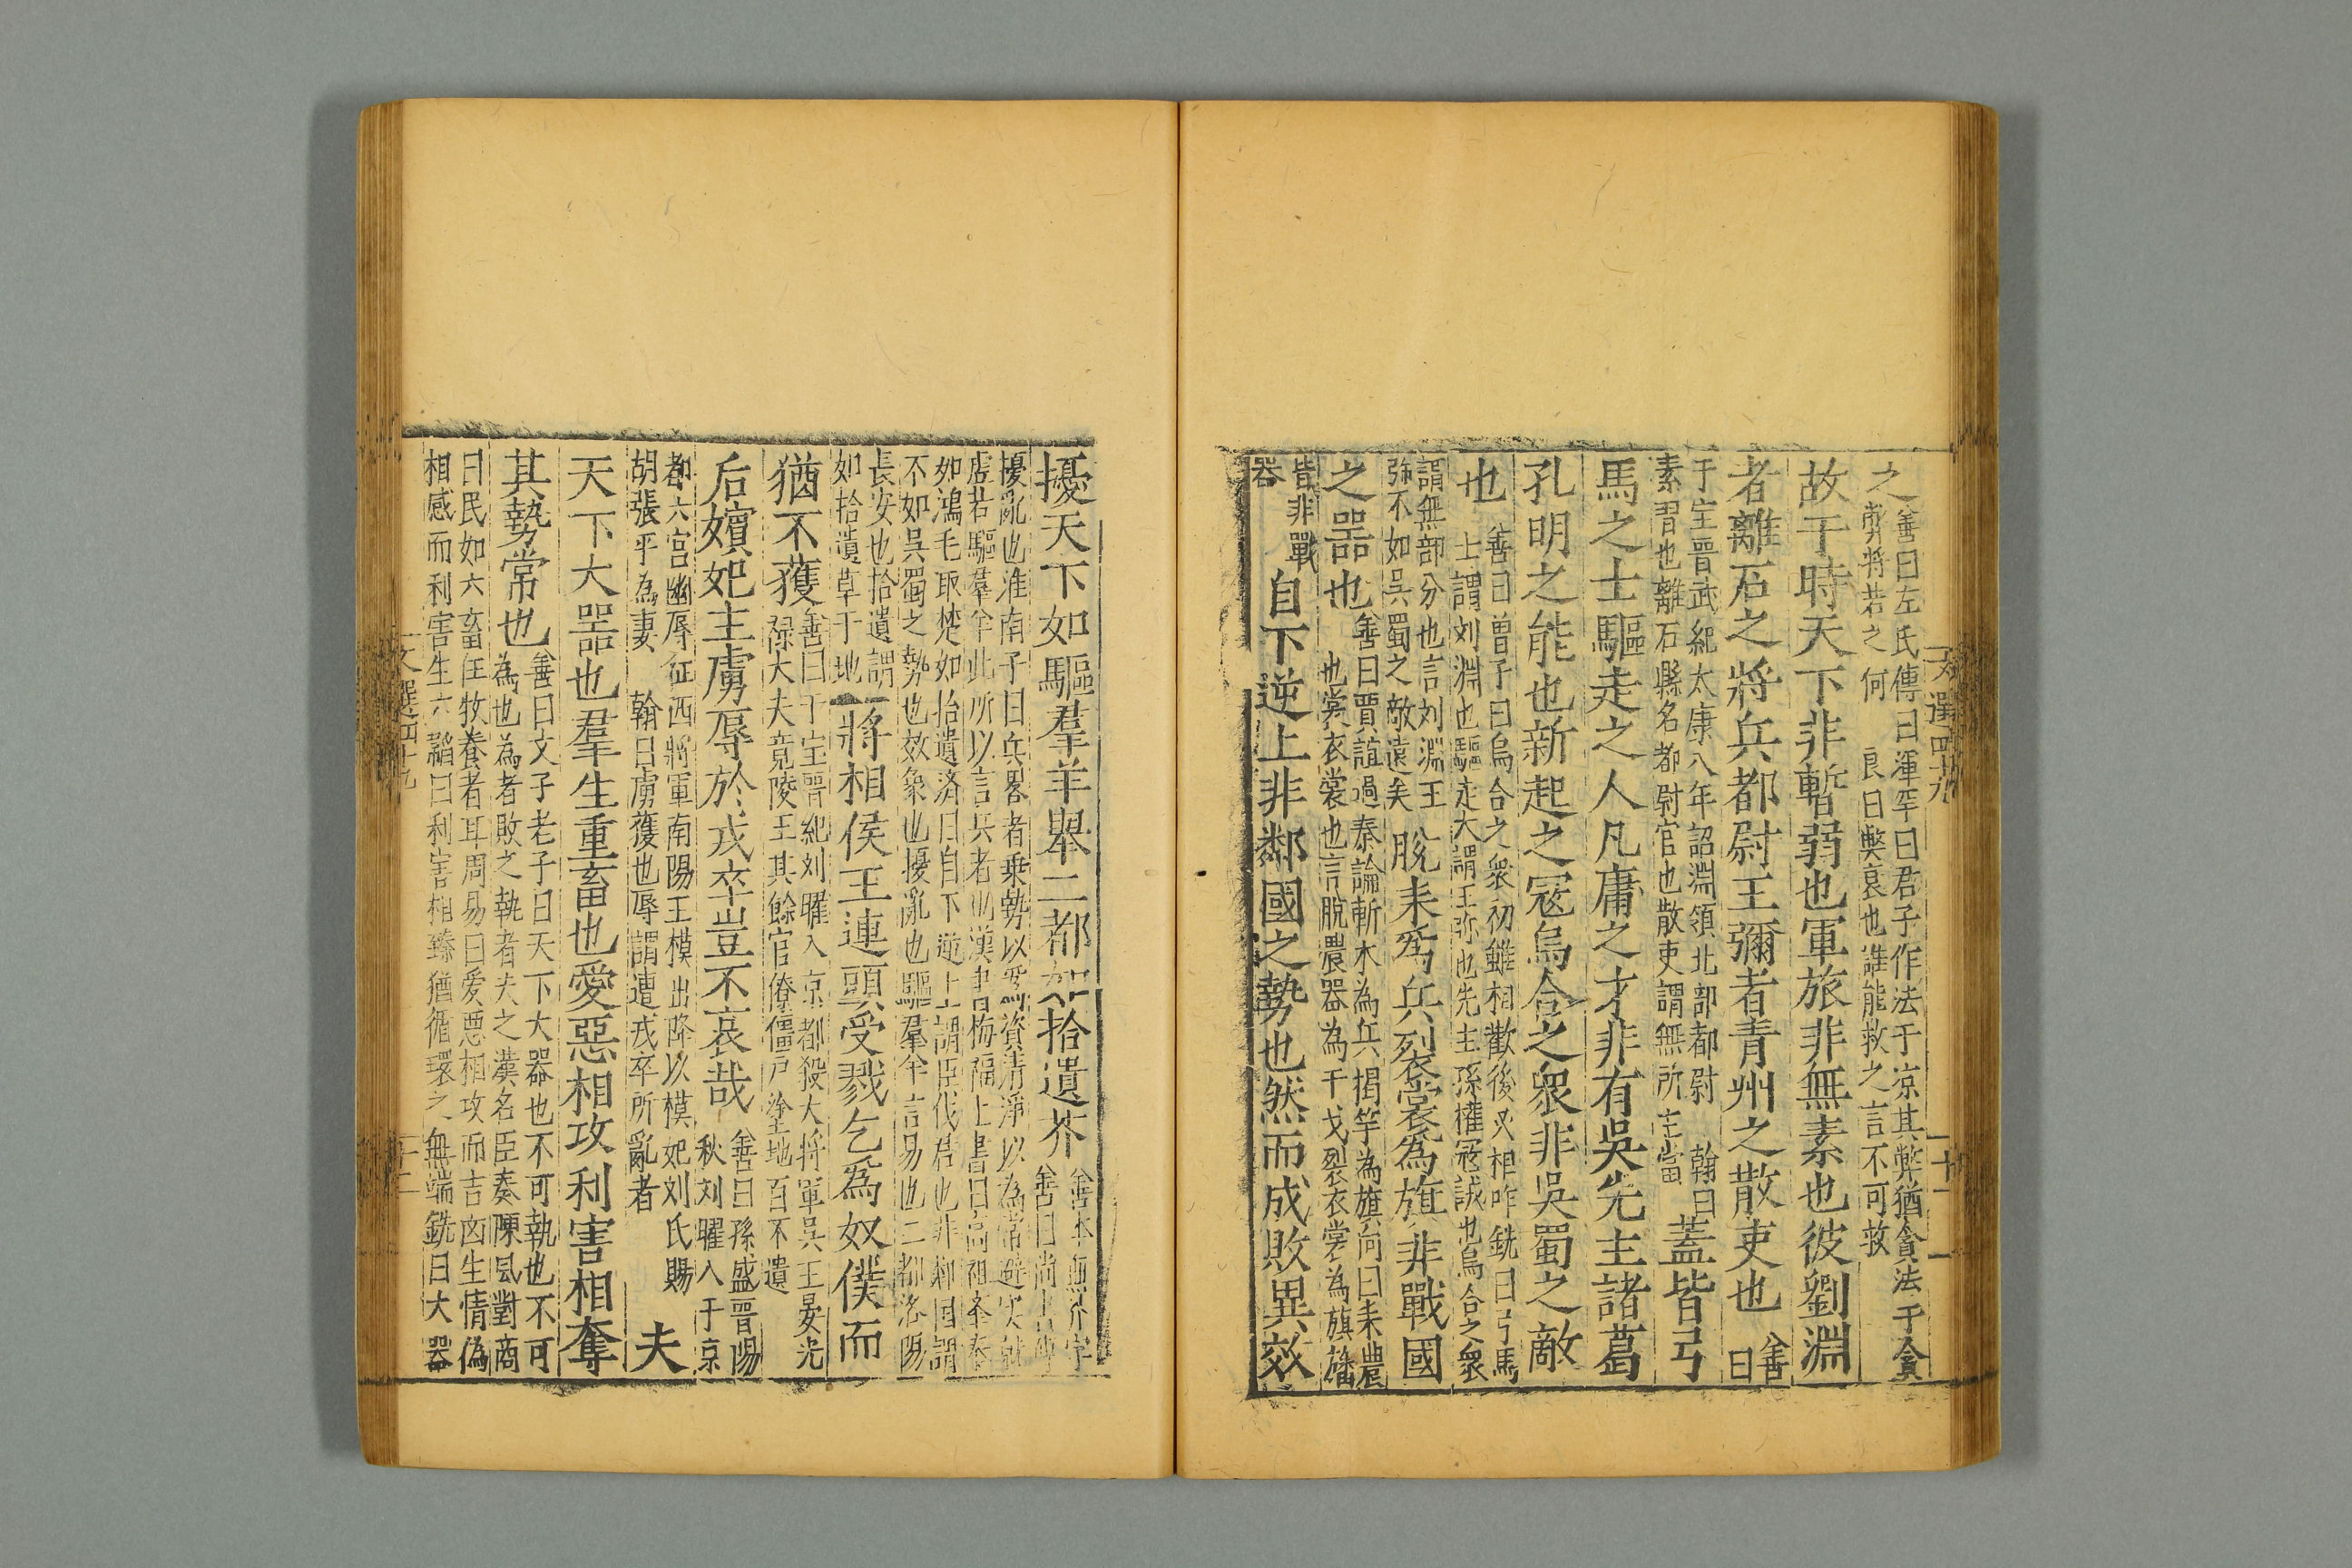 之善曰左氏傳曰渾罕曰君子作法于凉其弊猶貪法于貪
弊將若之何 良曰弊衰也誰能救之言不可救
故于時天下非暫弱也軍旅非無素也彼劉淵
者離石之將兵都尉王彌者青州之散吏也善曰
于宝晋武紀太康八年詔淵領北部都尉 翰曰
素習也離石縣名都尉官也散吏謂無所主當
蓋皆弓
馬之士驅走之人凡庸之才非有吳先主諸葛
孔明之能也新起之寇烏合之衆非吳蜀之敵
也善曰曾子曰烏合之衆初雖相歡後必相咋銑曰弓馬
士謂刘淵也驅走大謂王弥也先主孫權寇誠也烏合之衆
謂無部分也言刘淵王
弥不如吳蜀之敵遠矣
脫耒爲兵裂裳爲旗非戰國
之器也善曰賈誼過秦論斬木為兵揭竿為旗向曰耒農
也裳衣裳也言脫農器為干戈裂衣裳為旗旛
皆非戰
器
自下逆上非鄰國之勢也然而成敗異效
擾天下如驅羣羊舉二都如拾遺芥善本無芥字
善曰尚書傳
擾亂也淮南子曰兵畧者乗勢以爲資清淨以為常避实就
虚若驅羣羊此所以言兵者也漢書梅福上書曰高祖舉秦
如鴻毛取楚如拾遺济曰自下逆上謂臣伐君也非鄰国謂
不如吳蜀之勢也效象也擾亂也驅羣羊言易也二都洛陽
長安也拾遺謂
如拾遺草于地
將相侯王連頭受戮乞爲奴僕而
猶不獲善曰干宝晋紀刘曜入京都殺大将軍吳王晏光
禄大夫竟陵王其餘官僚僵尸塗地百不遺
后嬪妃主虜辱於戎卒豈不哀哉善曰孫盛晋陽
秋刘曜入于京
都六宫幽辱征西將軍南陽王模出降以模妃刘氏賜
胡張平為妻 翰曰虜獲也辱謂遭戎卒所亂者
夫
天下大器也羣生重畜也愛惡相攻利害相奪
其勢常也善曰文子老子曰天下大器也不可執也不可
為也為者敗之執者失之漢名臣奏陳風對商
曰民如六畜在牧養者耳周易曰爱惡相攻而吉凶生情偽
相感而利害生六韜曰利害相臻猶循環之無端銑曰大器
文選四十九
十一